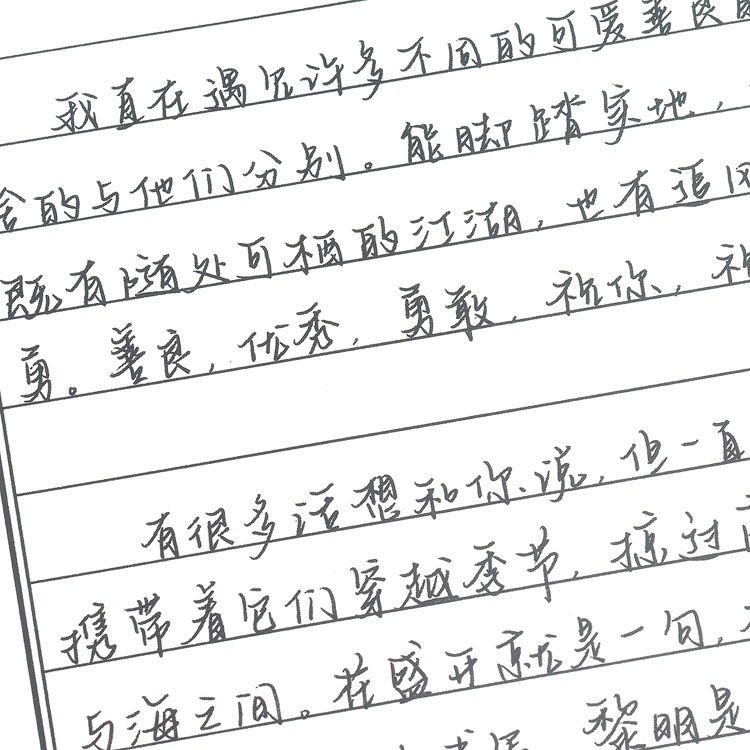 我直在遇见许多不同的可爱善良
舍的与他们分别。能脚踏实地，
既有随处可栖的江湖，也有追风
勇。善良，优秀，勇敢，祝你，祝
有很多话想和你说，但一直
携带着它们穿越季节，掠过
与海之间。花盛开就是一句，
黎明是